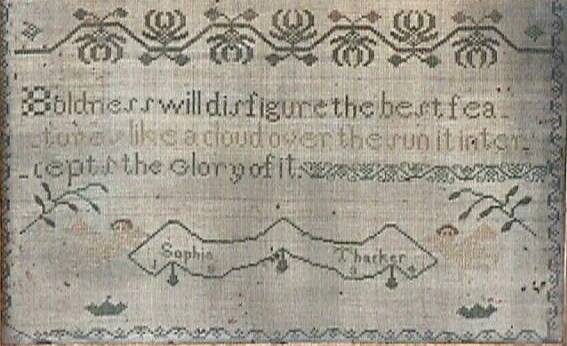 Boldness will disfigure the best fea
tures like a cloud over the sun it inter
cepts the Glory of it
Sophia Thacker